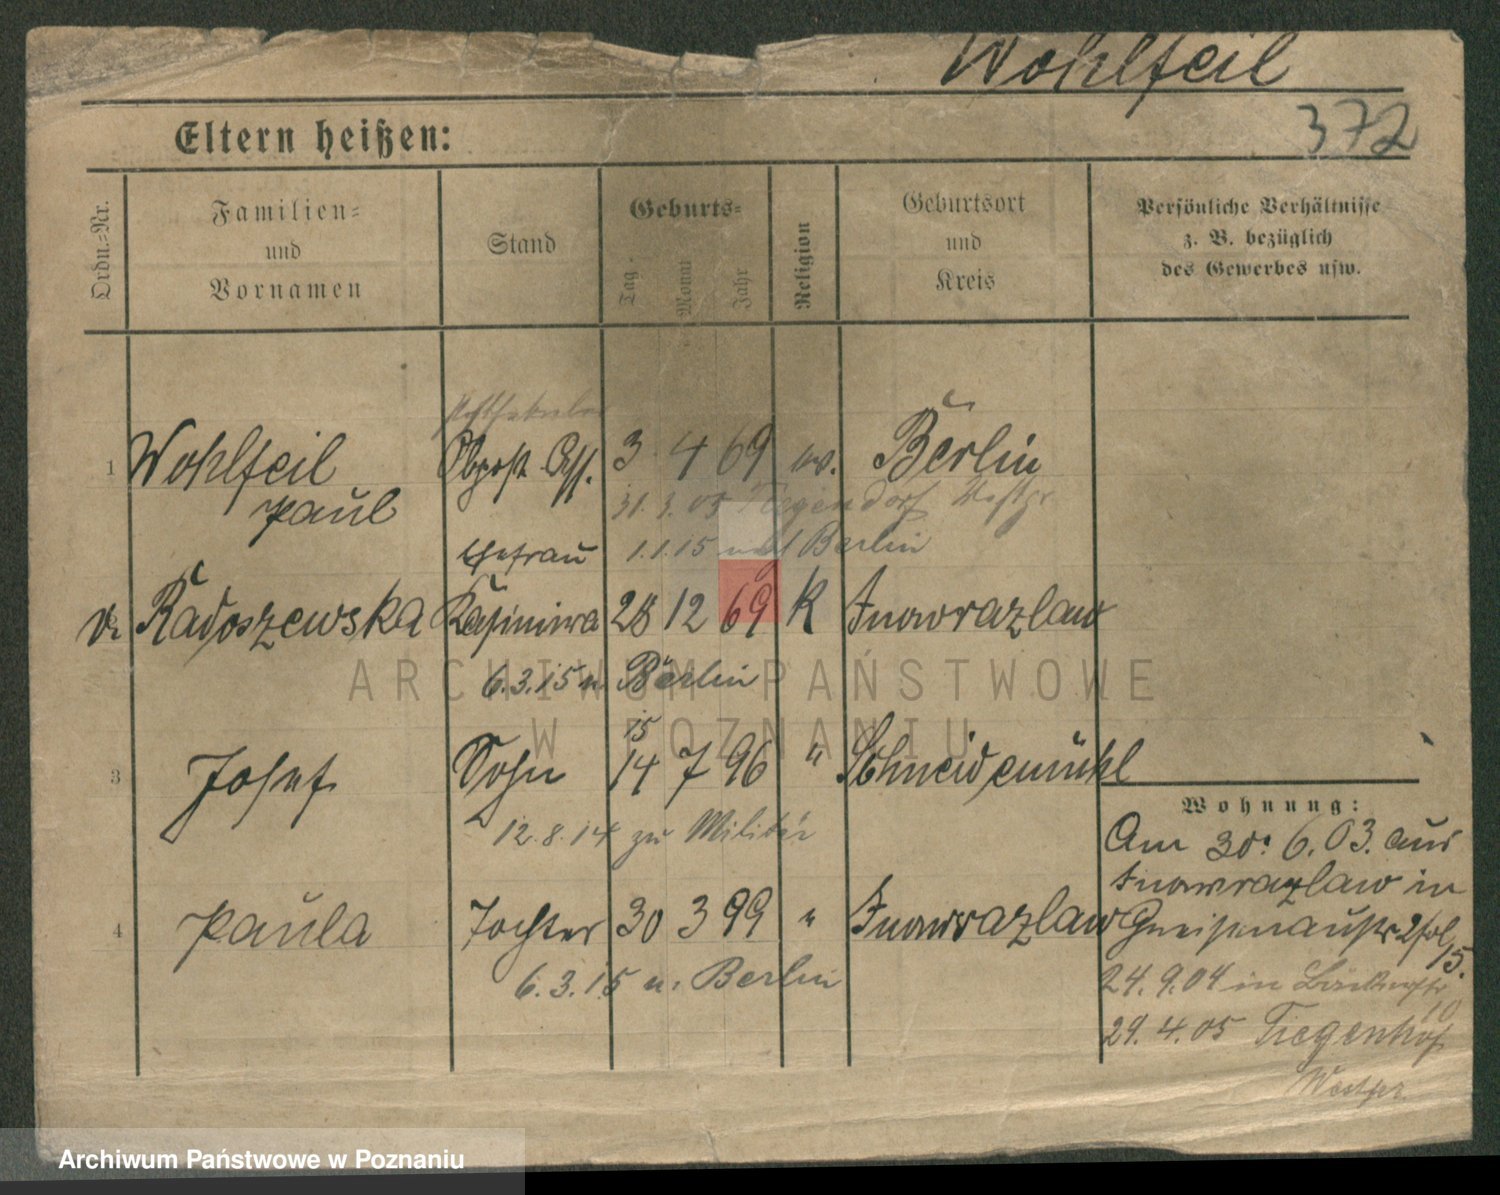 Wohlfeil
372
Eltern heißen:
Ordn.-Nr.
Familien-
und
Vornamen
Stand
Geburts-
Tag
Monat
Jahr
Religion
Geburtsort
und
Kreis
Persönliche Verhältnisse
z. B. bezüglich
des Gewerbes usw.
1 Wohlfeil Obpost Ass. 3 4 69 ev. Berlin
Paul
31. 3. 05 Westpr
Ehefrau 1.1.15 Berlin
Radoszewska Kasimira 28 12 69 K Inowrazlaw
6.3.15 n. Berlin
15
3 Josef Sohn 14 7 96 " Schneidemühl
12.8.14 zu Militär
4 Paula Tochter 30 3 99 " Inowrazlaw
6.3.15 n. Berlin
Wohnung:
Am 30. 6. 03. aus
Inowrazlaw in
Gneisenaustr 2
24. 9. 04 in
10
29. 4. 05 Tiegenhof
Westpr
ARCHIWUM PAŃSTWOWE
W POZNANIU
Archiwum Państwowe w Poznaniu